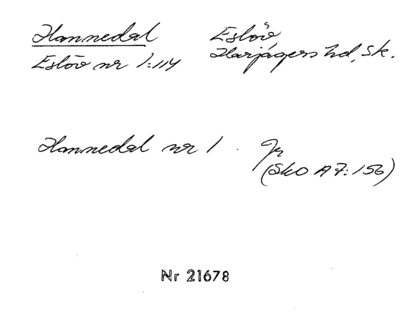 Hannedal Eslöv
Eslöv nr 1:114 Harjagers hd, Sk.
Hannedal nr 1. Jr
(SkO A 7:156)
Nr 21678